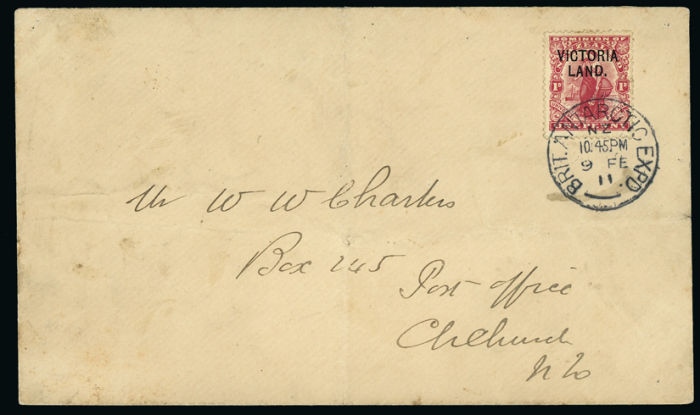 DOMINION OF
VICTORIA
LAND.
1D 1D
BRIT. ANTARCTIC EXPD.
NZ
10.45PM
9 FE
11
Mr W W Charters
Box 245
Post Office
ChChurch
NZ